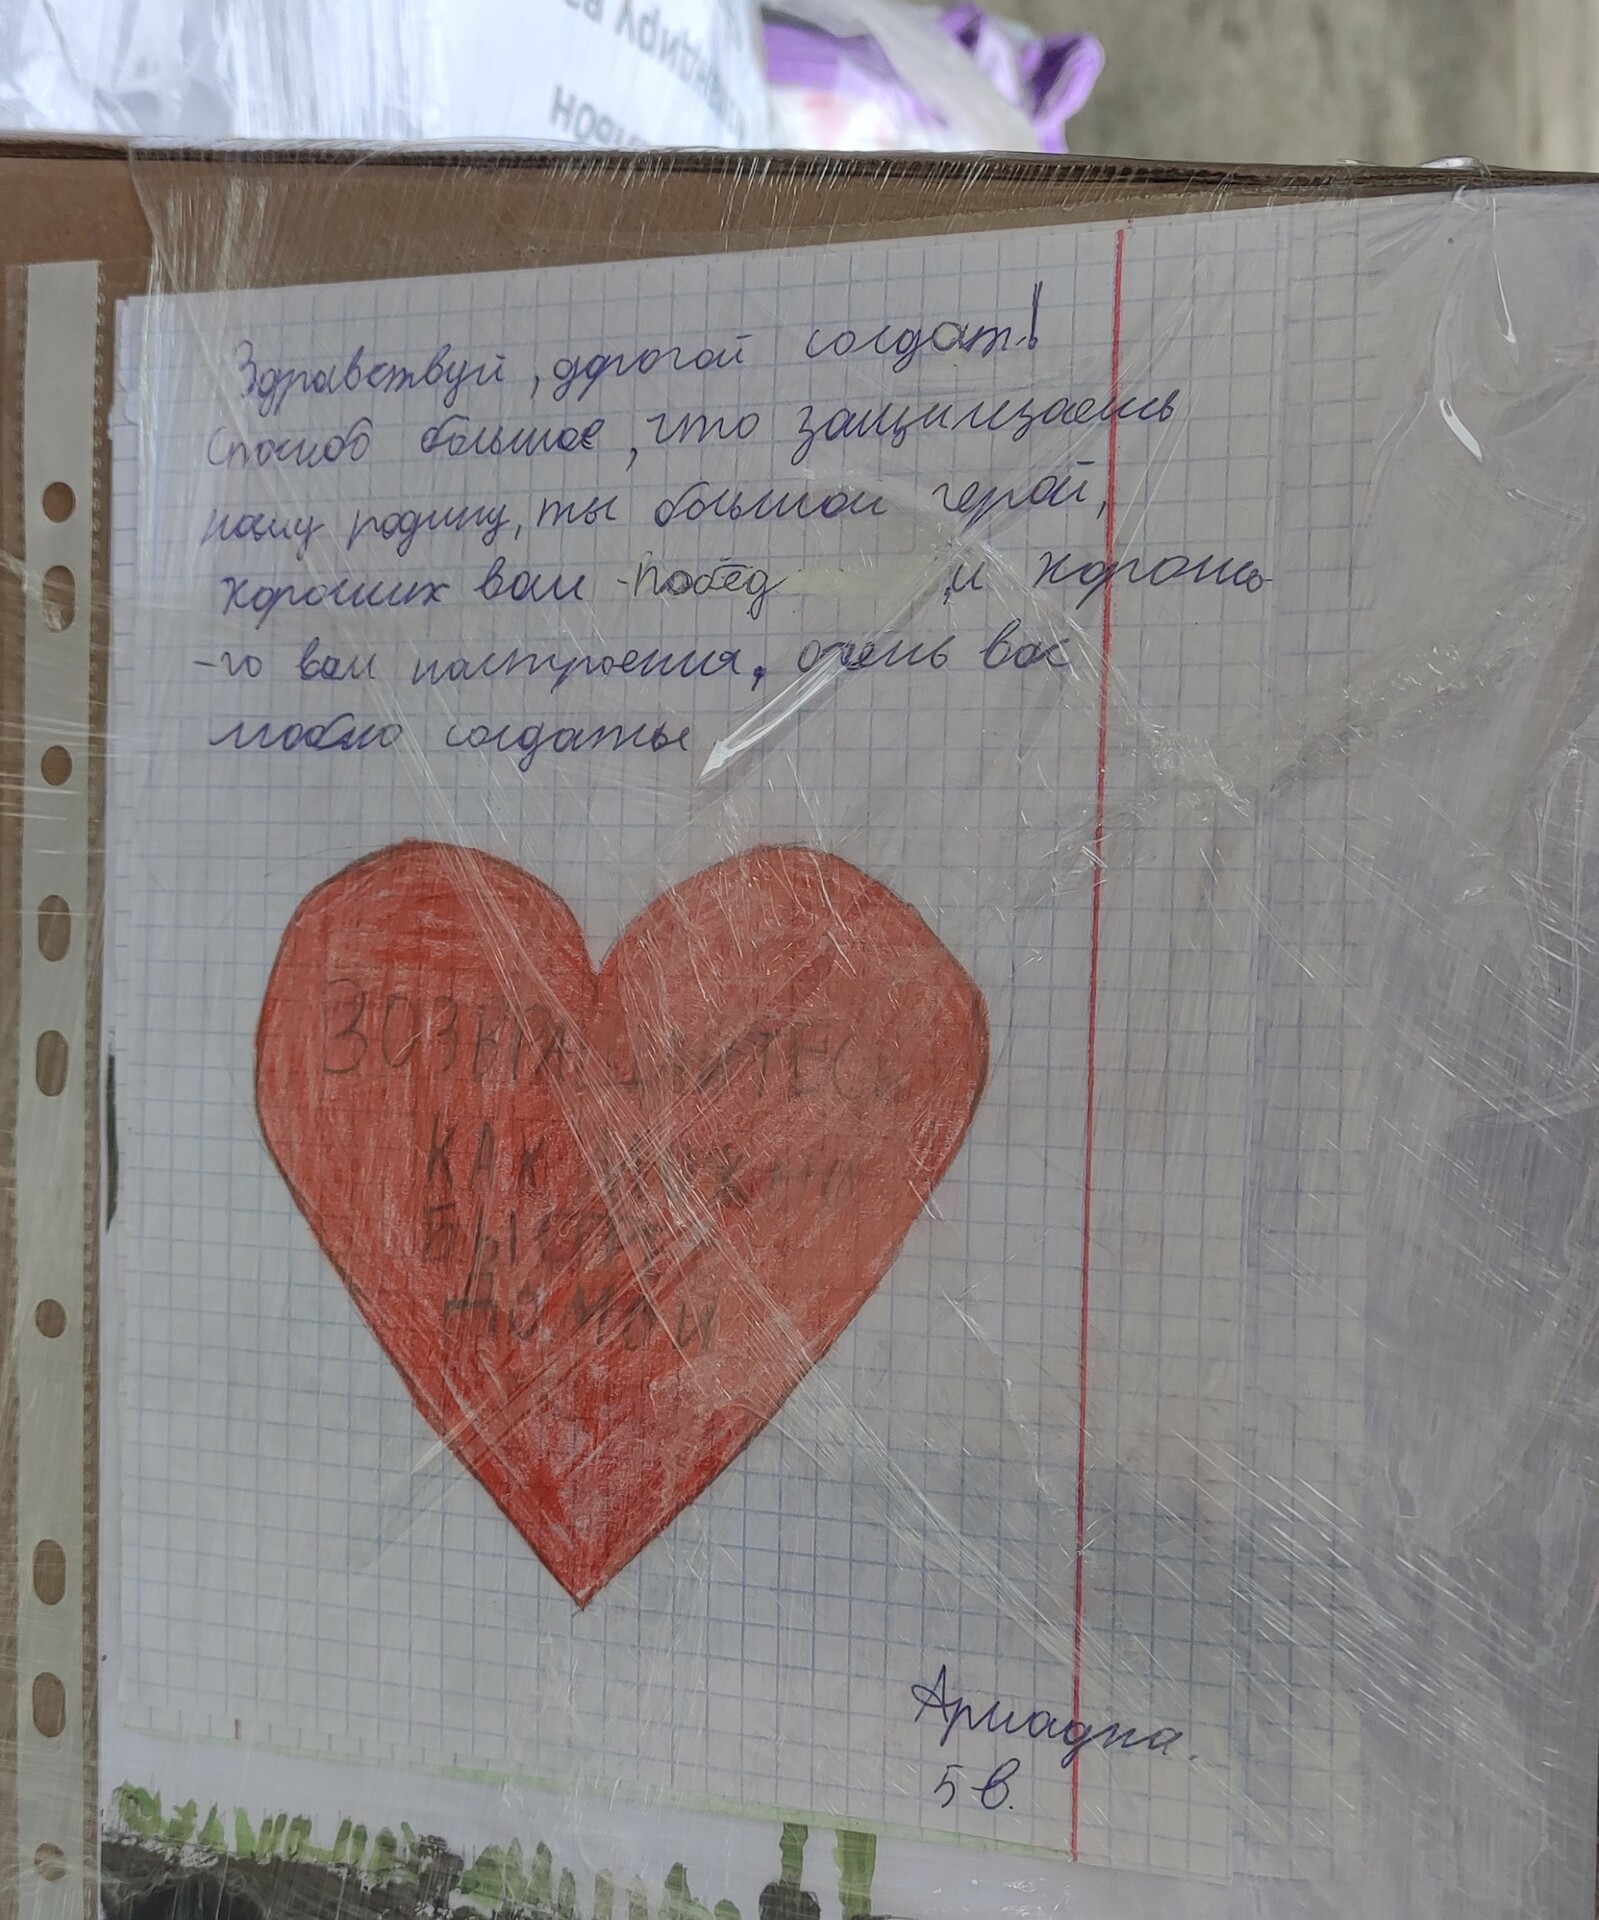 Здравствуй, дорогой солдат!
Спасибо большое, что защищаешь
нашу родину, ты большой герой,
хороших вам побед и хороше-
-го вам настроения, очень вас
люблю солдаты
ВОЗВРАЩАЙТЕСЬ
КАК МОЖНО
БЫСТРЕЕ
ДОМОЙ
Ариадна.
5 в.